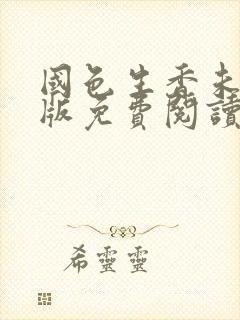 國色生香未
版免費閱讀
希靈靈